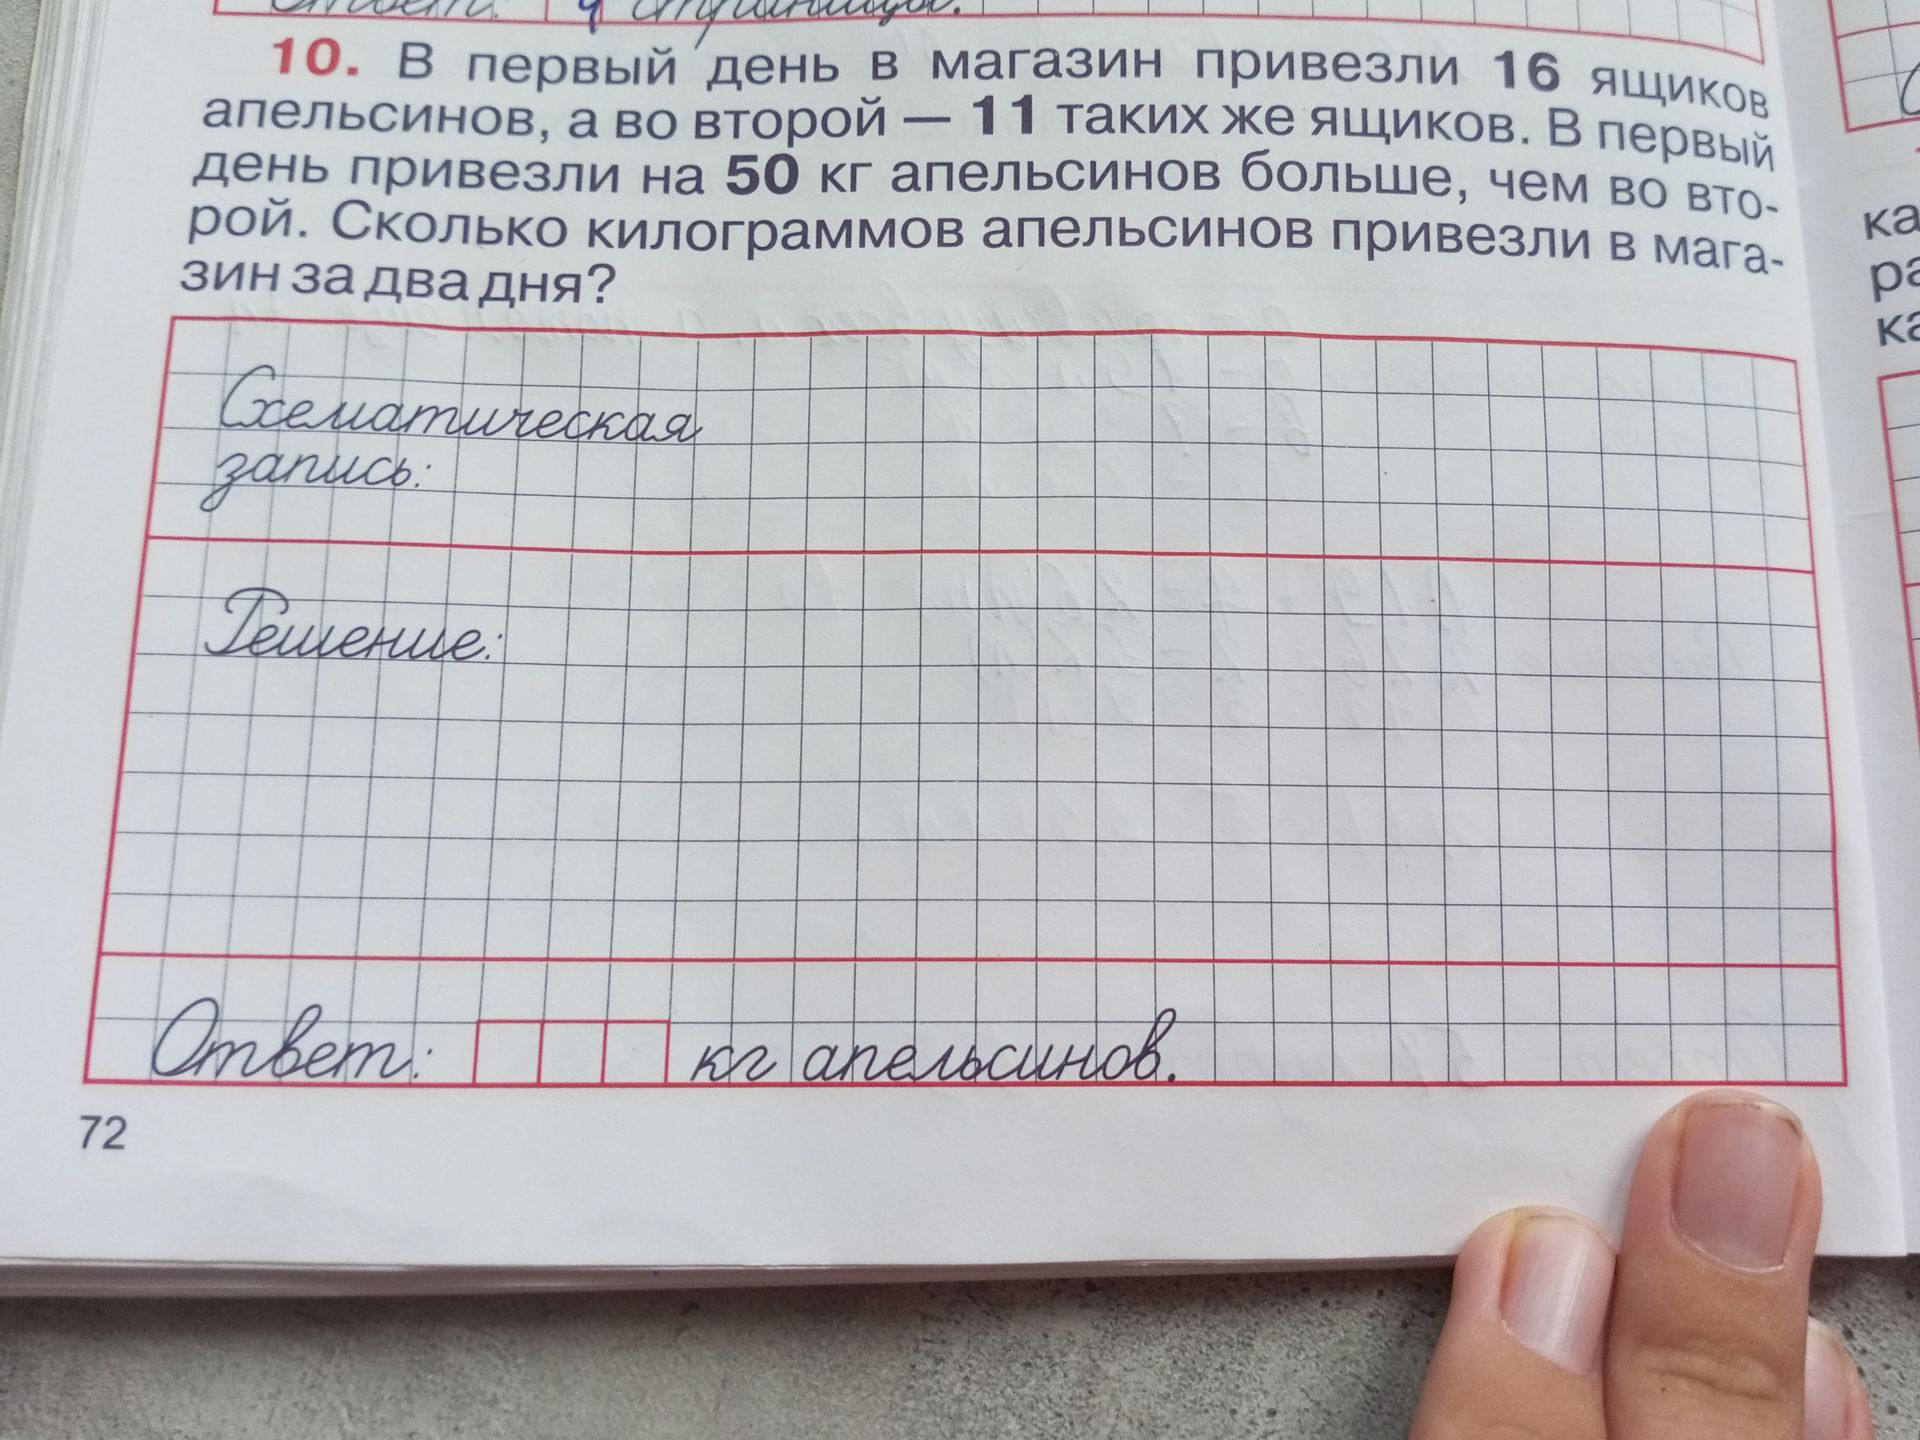 Ответ: 4 страницы.
10. В первый день в магазин привезли 16 ящиков
апельсинов, а во второй — 11 таких же ящиков. В первый
день привезли на 50 кг апельсинов больше, чем во вто-
рой. Сколько килограммов апельсинов привезли в мага-
зин за два дня?
Схематическая
запись:
Решение:
Ответ: кг апельсинов.
72
ка
ра
ка